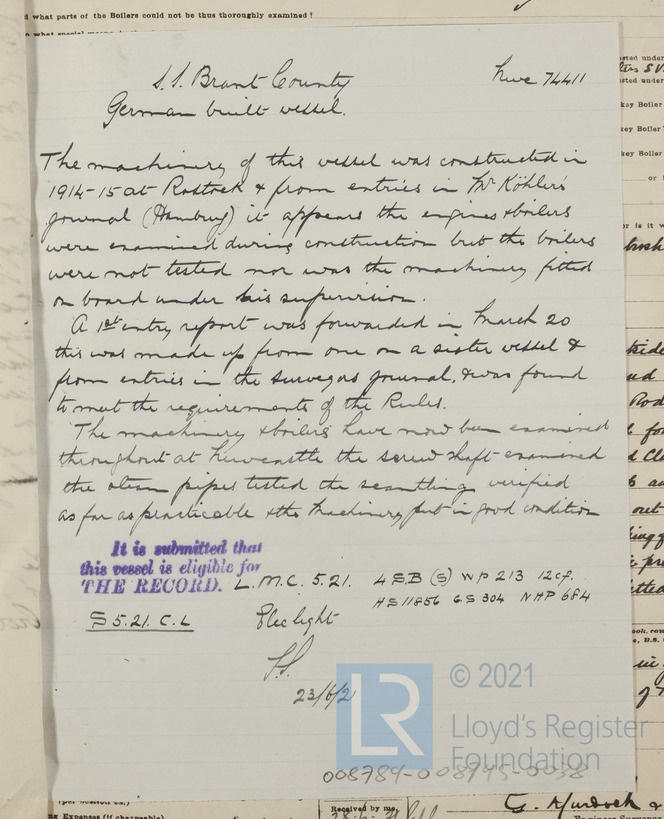 d what parts of the Boilers could not be thus thoroughly examined?
S.S. Brant County
Nwc 74411
German built vessel.
The machinery of this vessel was constructed in
1914-15 at Rostock & from entries in Mr Köhler's
journal (Hamburg) it appears the engines & boilers
were examined during construction but the boilers
were not tested nor was the machinery fitted
on board under his supervision.
A 1st entry report was forwarded in March 20
this was made up from one on a sister vessel &
from entries in the surveyors journal, & was found
to meet the requirements of the Rules.
The machinery & boilers have now been examined
throughout at Newcastle the screw shaft examined
the steam pipes tested the scantling verified
as far as practicable & the machinery put in good condition
It is submitted that
this vessel is eligible for
THE RECORD. L.M.C. 5.21. 4 S.B (S) WP 213 12 cf.
HS 11856 GS 304 NHP 684
S 5.21. C.L
Elec light
23/6/21
LR
© 2021
Lloyd's Register
Foundation
008789-008795-0038
ng Expenses (if chargeable)
Received by me,
G. Murdoch &
Engineer Surveyor